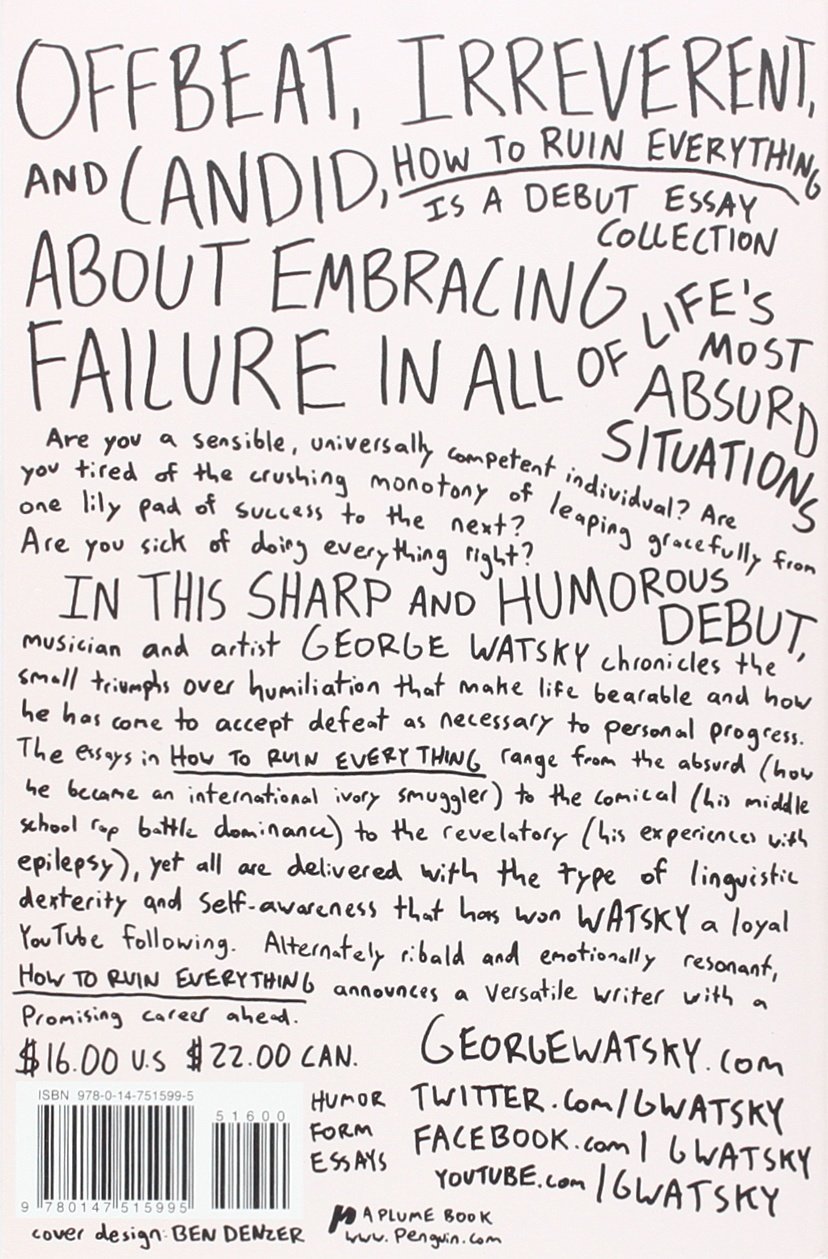 OFFBEAT, IRREVERENT,
AND CANDID, HOW TO RUIN EVERYTHING
IS A DEBUT ESSAY
COLLECTION
ABOUT EMBRACING
FAILURE IN ALL OF LIFE'S
MOST
ABSURD
SITUATIONS
Are you a sensible, universally competent individual? Are
you tired of the crushing monotony of leaping gracefully from
one lily pad of success to the next?
Are you sick of doing everything right?
IN THIS SHARP AND HUMOROUS
DEBUT,
musician and artist GEORGE WATSKY chronicles the
small triumphs over humiliation that make life bearable and how
he has come to accept defeat as necessary to personal progress.
The essays in HOW TO RUIN EVERYTHING range from the absurd (how
he became an international ivory smuggler) to the comical (his middle
school rap battle dominance) to the revelatory (his experiences with
epilepsy), yet all are delivered with the type of linguistic
dexterity and self-awareness that has won WATSKY a loyal
YouTube following. Alternately ribald and emotionally resonant,
HOW TO RUIN EVERYTHING announces a versatile writer with a
promising career ahead.
$16.00 U.S $22.00 CAN.
GEORGEWATSKY.com
TWITTER.com/GWATSKY
FACEBOOK.com/GWATSKY
YOUTUBE.com/GWATSKY
ISBN 978-0-14-751599-5
51600
9 780147 515995
HUMOR
FORM
ESSAYS
cover design: BEN DENZER
A PLUME BOOK
www.Penguin.com